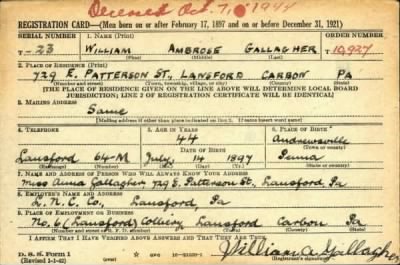 Deceased Oct. 7, 1944
REGISTRATION CARD—(Men born on or after February 17, 1897 and on or before December 31, 1921)
SERIAL NUMBER 1. NAME (Print) ORDER NUMBER
T-23 WILLIAM AMBROSE GALLAGHER 10,927
(First) (Middle) (Last)
2. PLACE OF RESIDENCE (Print)
729 E. PATTERSON ST., LANSFORD CARBON PA
(Number and street) (Town, township, village, or city) (County) (State)
[THE PLACE OF RESIDENCE GIVEN ON THE LINE ABOVE WILL DETERMINE LOCAL BOARD
JURISDICTION; LINE 2 OF REGISTRATION CERTIFICATE WILL BE IDENTICAL]
3. MAILING ADDRESS
Same
[Mailing address if other than place indicated on line 2. If same insert word same]
4. TELEPHONE 5. AGE IN YEARS 6. PLACE OF BIRTH
44 Andrewsville
DATE OF BIRTH (Town or county)
Lansford 64-M July 14 1897 Penna
(Exchange) (Number) (Mo.) (Day) (Yr.) (State or country)
7. NAME AND ADDRESS OF PERSON WHO WILL ALWAYS KNOW YOUR ADDRESS
Miss Anna Gallagher 729 E. Patterson St, Lansford, Pa
8. EMPLOYER'S NAME AND ADDRESS
L. N. C. Co., Lansford, Pa
9. PLACE OF EMPLOYMENT OR BUSINESS
No. 6 (Lansford) Colliery, Lansford Carbon Pa
(Number and street or R. F. D. number) (Town) (County) (State)
I AFFIRM THAT I HAVE VERIFIED ABOVE ANSWERS AND THAT THEY ARE TRUE.
D. S. S. Form 1
(Revised 1-1-42) (over)
William A. Gallagher
(Registrant's signature)